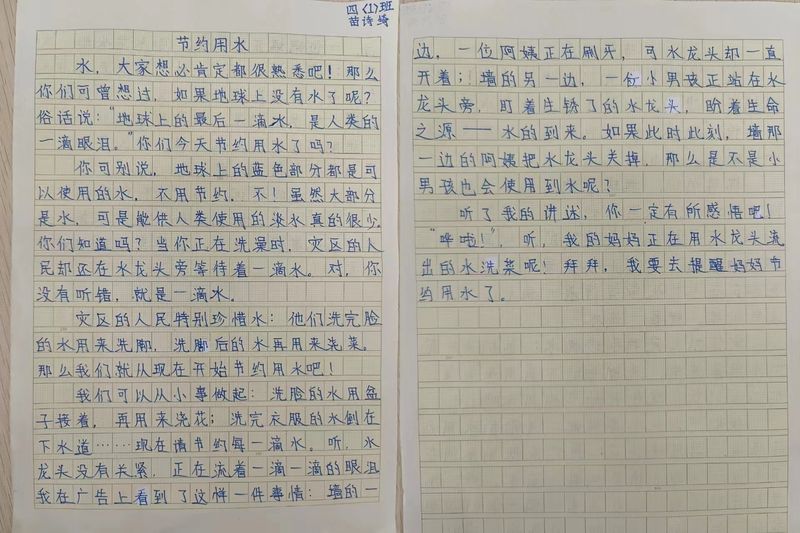 四〈1〉班
苗诗绮
节约用水
水，大家想必肯定都很熟悉吧！那么
你们可曾想过，如果地球上没有水了呢？
俗话说：“地球上的最后一滴水，是人类的
一滴眼泪。”你们今天节约用水了吗？
你可别说，地球上的蓝色部分都是可
以使用的水，不用节约，不！虽然大部分
是水，可是能供人类使用的淡水真的很少。
你们知道吗？当你正在洗澡时，灾区的人
民却还在水龙头旁等待着一滴水。对，你
没有听错，就是一滴水。
灾区的人民特别珍惜水：他们洗完脸
的水用来洗脚，洗脚后的水再用来浇菜。
那么我们就从现在开始节约用水吧！
我们可以从小事做起：洗脸的水用盆
子接着，再用来浇花；洗完衣服的水倒在
下水道……现在请节约每一滴水。听，水
龙头没有关紧，正在流着一滴一滴的眼泪
我在广告上看到了这样一件事情：墙的一
边，一位阿姨正在刷牙，可水龙头却一直
开着；墙的另一边，一位小男孩正站在水
龙头旁，盯着生锈了的水龙头，盼着生命
之源——水的到来。如果此时此刻，墙那
一边的阿姨把水龙头关掉，那么是不是小
男孩也会使用到水呢？
听了我的讲述，你一定有所感悟吧！
“哗啦！”，听，我的妈妈正在用水龙头流
出的水洗菜呢！拜拜，我要去提醒妈妈节
约用水了。